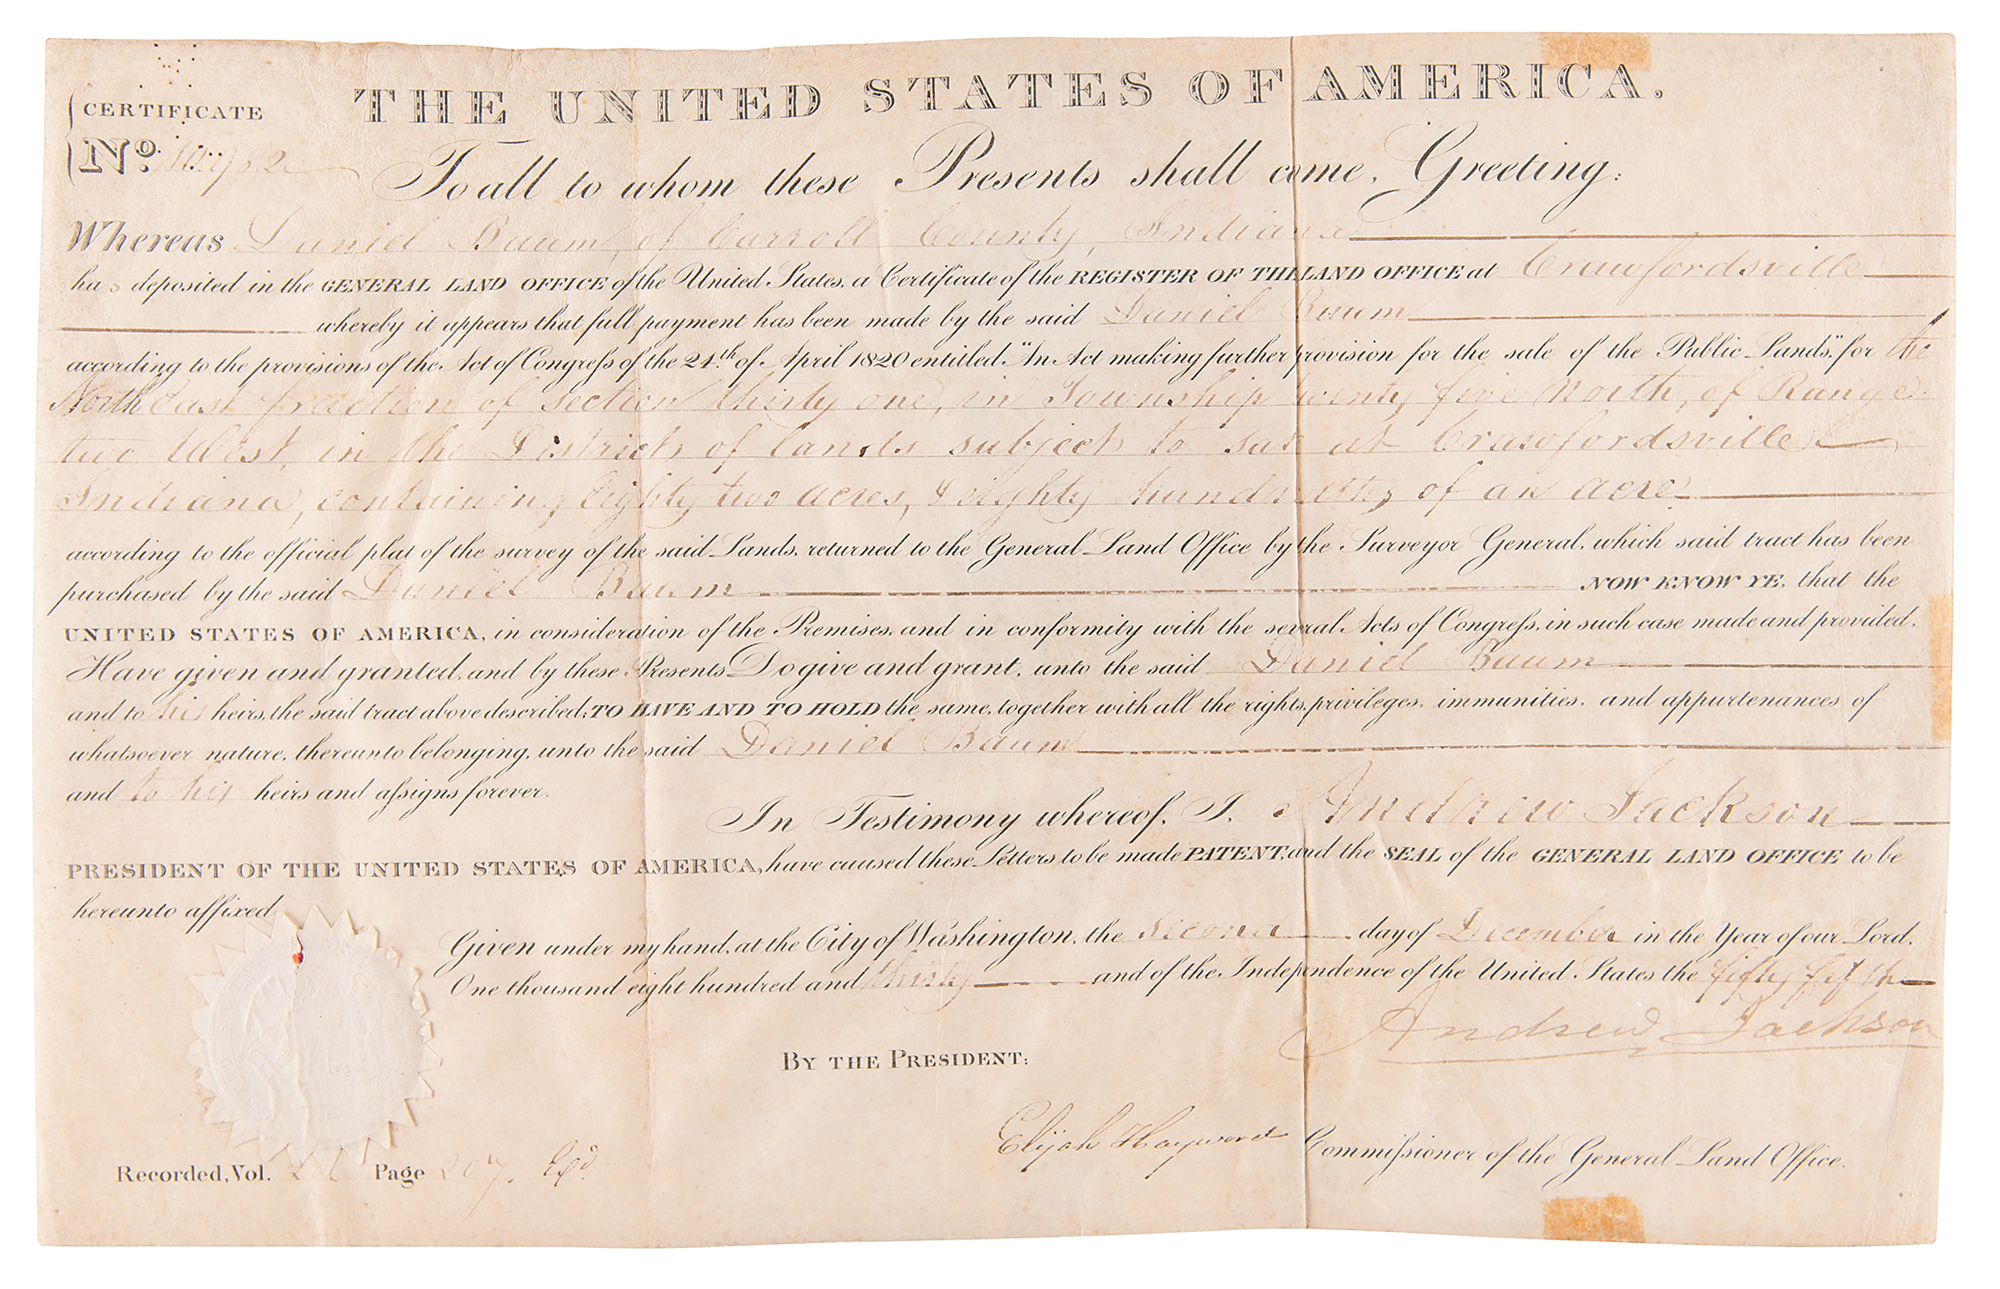 THE UNITED STATES OF AMERICA.
CERTIFICATE
No.
To all to whom these Presents shall come, Greeting:
Whereas Daniel Baum, of Carroll County, Indiana
has deposited in the GENERAL LAND OFFICE of the United States, a Certificate of the REGISTER OF THE LAND OFFICE at Crawfordsville
whereby it appears that full payment has been made by the said Daniel Baum
according to the provisions of the Act of Congress of the 24th of April 1820 entitled "An Act making further provision for the sale of the Public Lands," for the
North East fraction of Section thirty one, in Township twenty five North, of Range
two West, in the District of lands subject to sale at Crawfordsville
Indiana, containing Eighty two acres, & eighty hundredths of an acre
according to the official plat of the survey of the said Lands, returned to the General Land Office by the Surveyor General, which said tract has been
purchased by the said Daniel Baum NOW KNOW YE, that the
UNITED STATES OF AMERICA, in consideration of the Premises, and in conformity with the several Acts of Congress, in such case made and provided,
Have given and granted, and by these Presents Do give and grant, unto the said Daniel Baum
and to his heirs, the said tract above described; TO HAVE AND TO HOLD the same, together with all the rights, privileges, immunities, and appurtenances of
whatsoever nature, thereunto belonging, unto the said Daniel Baum
and to his heirs and assigns forever.
In Testimony whereof, I, Andrew Jackson
PRESIDENT OF THE UNITED STATES OF AMERICA, have caused these Letters to be made PATENT, and the SEAL of the GENERAL LAND OFFICE to be
hereunto affixed
Given under my hand, at the City of Washington, the Second day of December in the Year of our Lord,
One thousand eight hundred and thirty and of the Independence of the United States the fifty fifth
Andrew Jackson
BY THE PRESIDENT:
Elijah Hayward Commissioner of the General Land Office.
Recorded, Vol. Page 207.